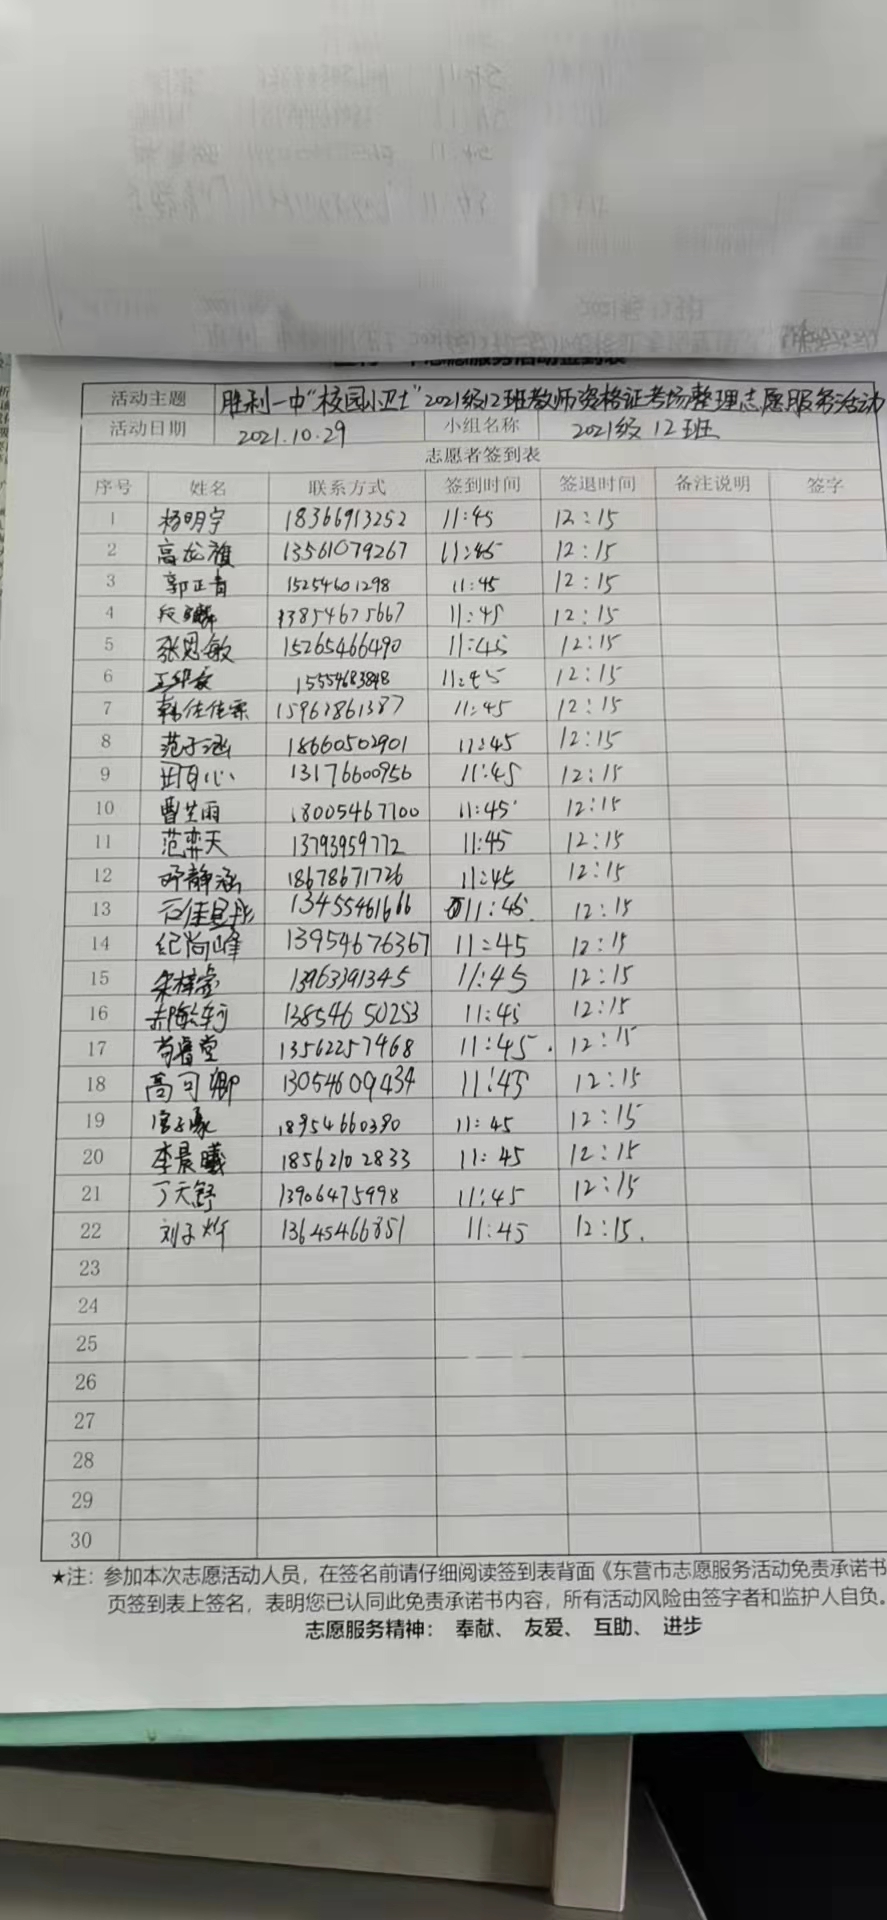 活动主题 胜利一中"校园小卫士"2021级12班教师资格证考场整理志愿服务活动
活动日期 2021.10.29 小组名称 2021级12班
志愿者签到表
序号 姓名 联系方式 签到时间 签退时间 备注说明 签字
1 杨明宇 18366913252 11:45 12:15
2 高龙雅 13561079267 11:45 12:15
3 郭正青 15254601298 11:45 12:15
4 13854675667 11:45 12:15
5 张思敏 15265466490 11:45 12:15
6 15554683848 11:45 12:15
7 韩佳佳霖 15962861387 11:45 12:15
8 范子涵 18660502901 11:45 12:15
9 田自心 13176600956 11:45 12:15
10 曹芷雨 18005467100 11:45 12:15
11 范弈天 13793959772 11:45 12:15
12 静涵 18678671726 11:45 12:15
13 石佳昱彤 13455461666 11:45 12:15
14 纪尚峰 13954676367 11:45 12:15
15 朱梓睿 13963391345 11:45 12:15
16 13854650253 11:45 12:15
17 苟睿莹 13562257468 11:45 12:15
18 高可卿 13054609434 11:45 12:15
19 18954660390 11:45 12:15
20 李晨曦 18562102833 11:45 12:15
21 丁天舒 13906475998 11:45 12:15
22 刘子烨 13645466851 11:45 12:15
23
24
25
26
27
28
29
30
★注：参加本次志愿活动人员，在签名前请仔细阅读签到表背面《东营市志愿服务活动免责承诺书
页签到表上签名，表明您已认同此免责承诺书内容，所有活动风险由签字者和监护人自负。
志愿服务精神： 奉献、 友爱、 互助、 进步